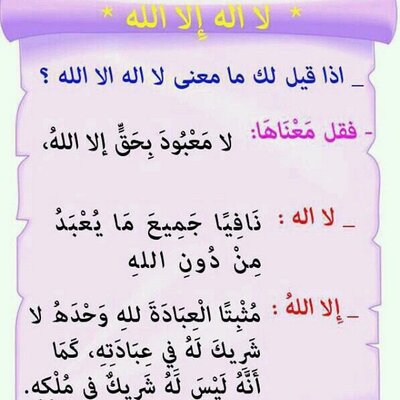 * لا اله إلا الله *
_ اذا قيل لك ما معنى لا اله الا الله ؟
- فقل مَعْنَاهَا: لا مَعْبُودَ بِحَقٍّ إلا اللهُ،
_ لا اله : نَافِيًا جَمِيعَ مَا يُعْبَدُ
مِنْ دُونِ اللهِ
_ إلا اللهُ : مُثْبِتًا الْعِبَادَةَ للهِ وَحْدَهُ لا
شَرِيكَ لَهُ فِي عِبَادَتِهِ، كَمَا
أَنَّهُ لَيْسَ لَهُ شَرِيكٌ فِي مُلْكِهِ.